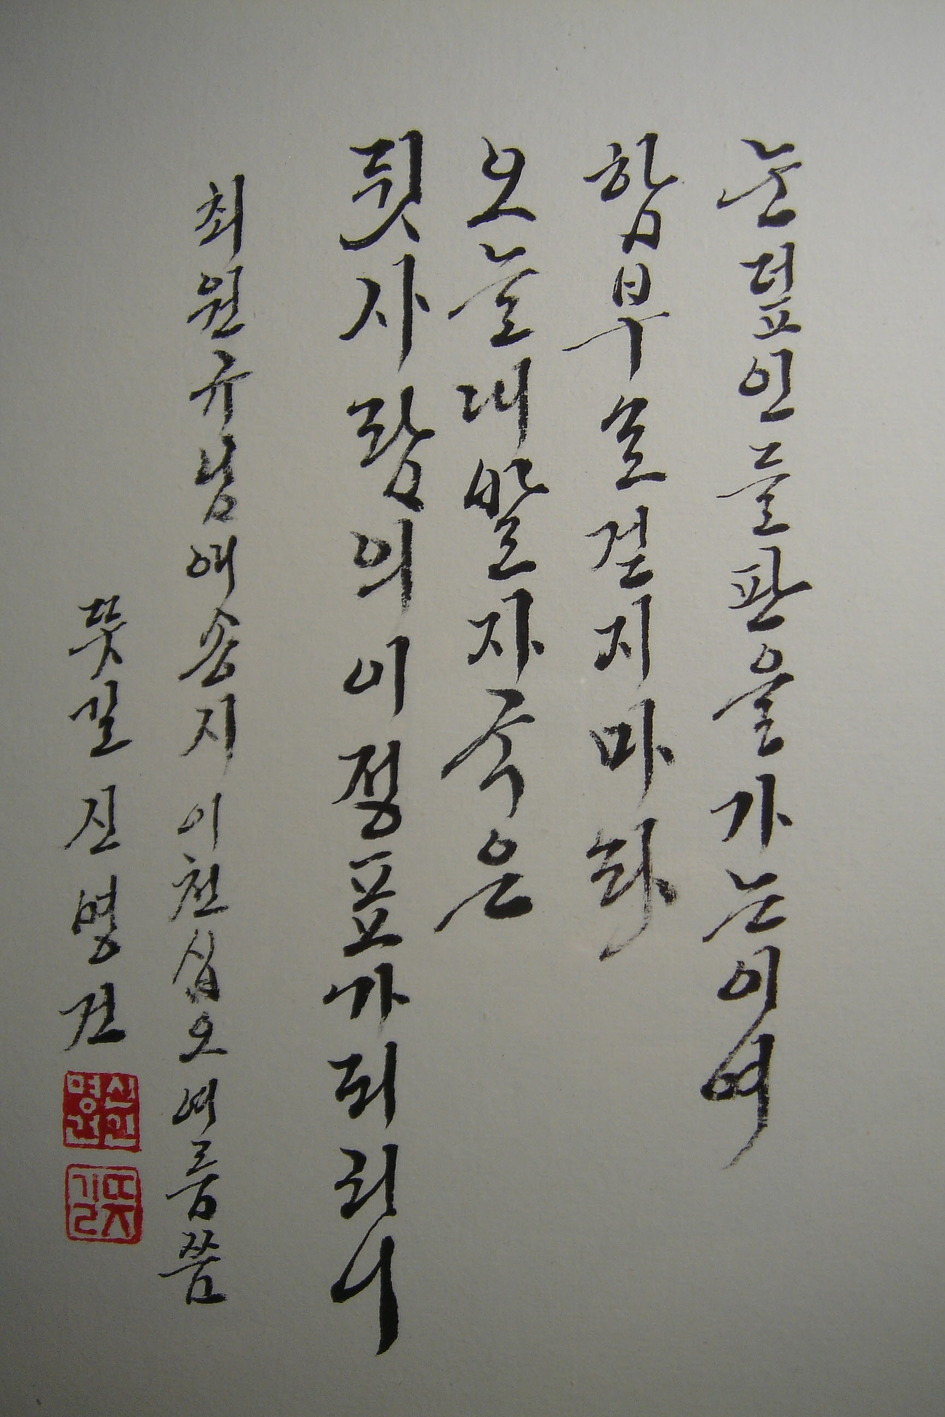 눈덮인들판을가는이여
함부로걷지마라
오늘내발자국은
뒷사람의이정표가되리니
최원규님애송지 이천십오여름쯤
뜻길 진명건
신인
명건
뜻
길